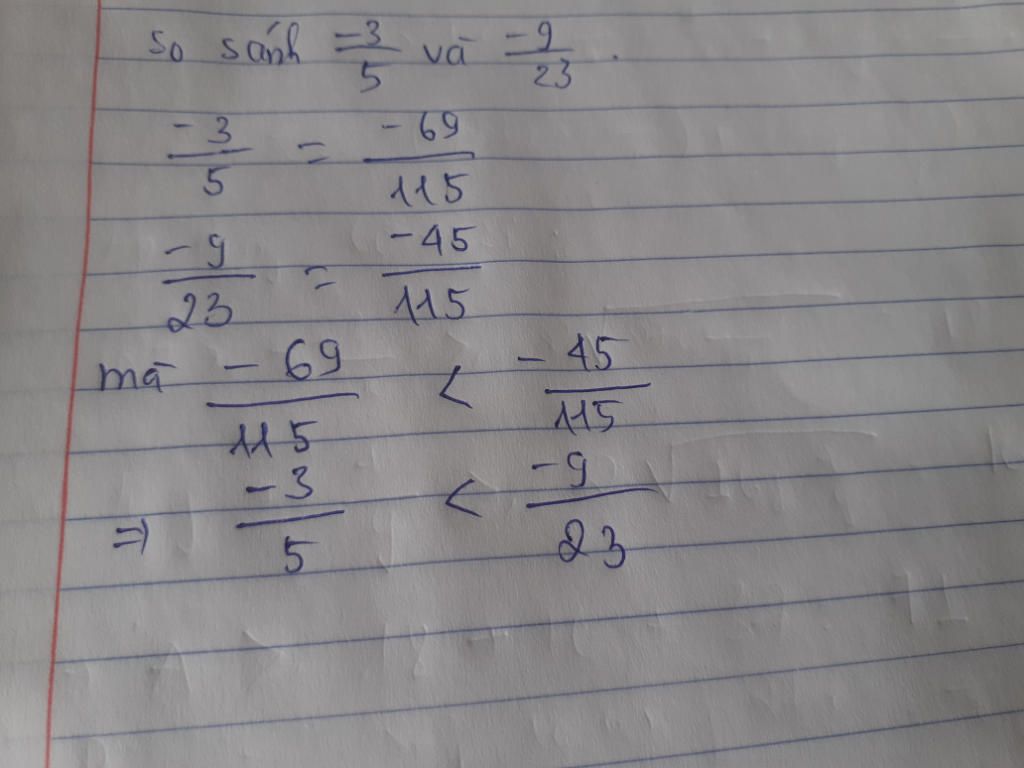 So sánh -3/5 và -9/23 .
-3/5 = -69/115
-9/23 = -45/115
mà -69/115 < -45/115
⇒ -3/5 < -9/23